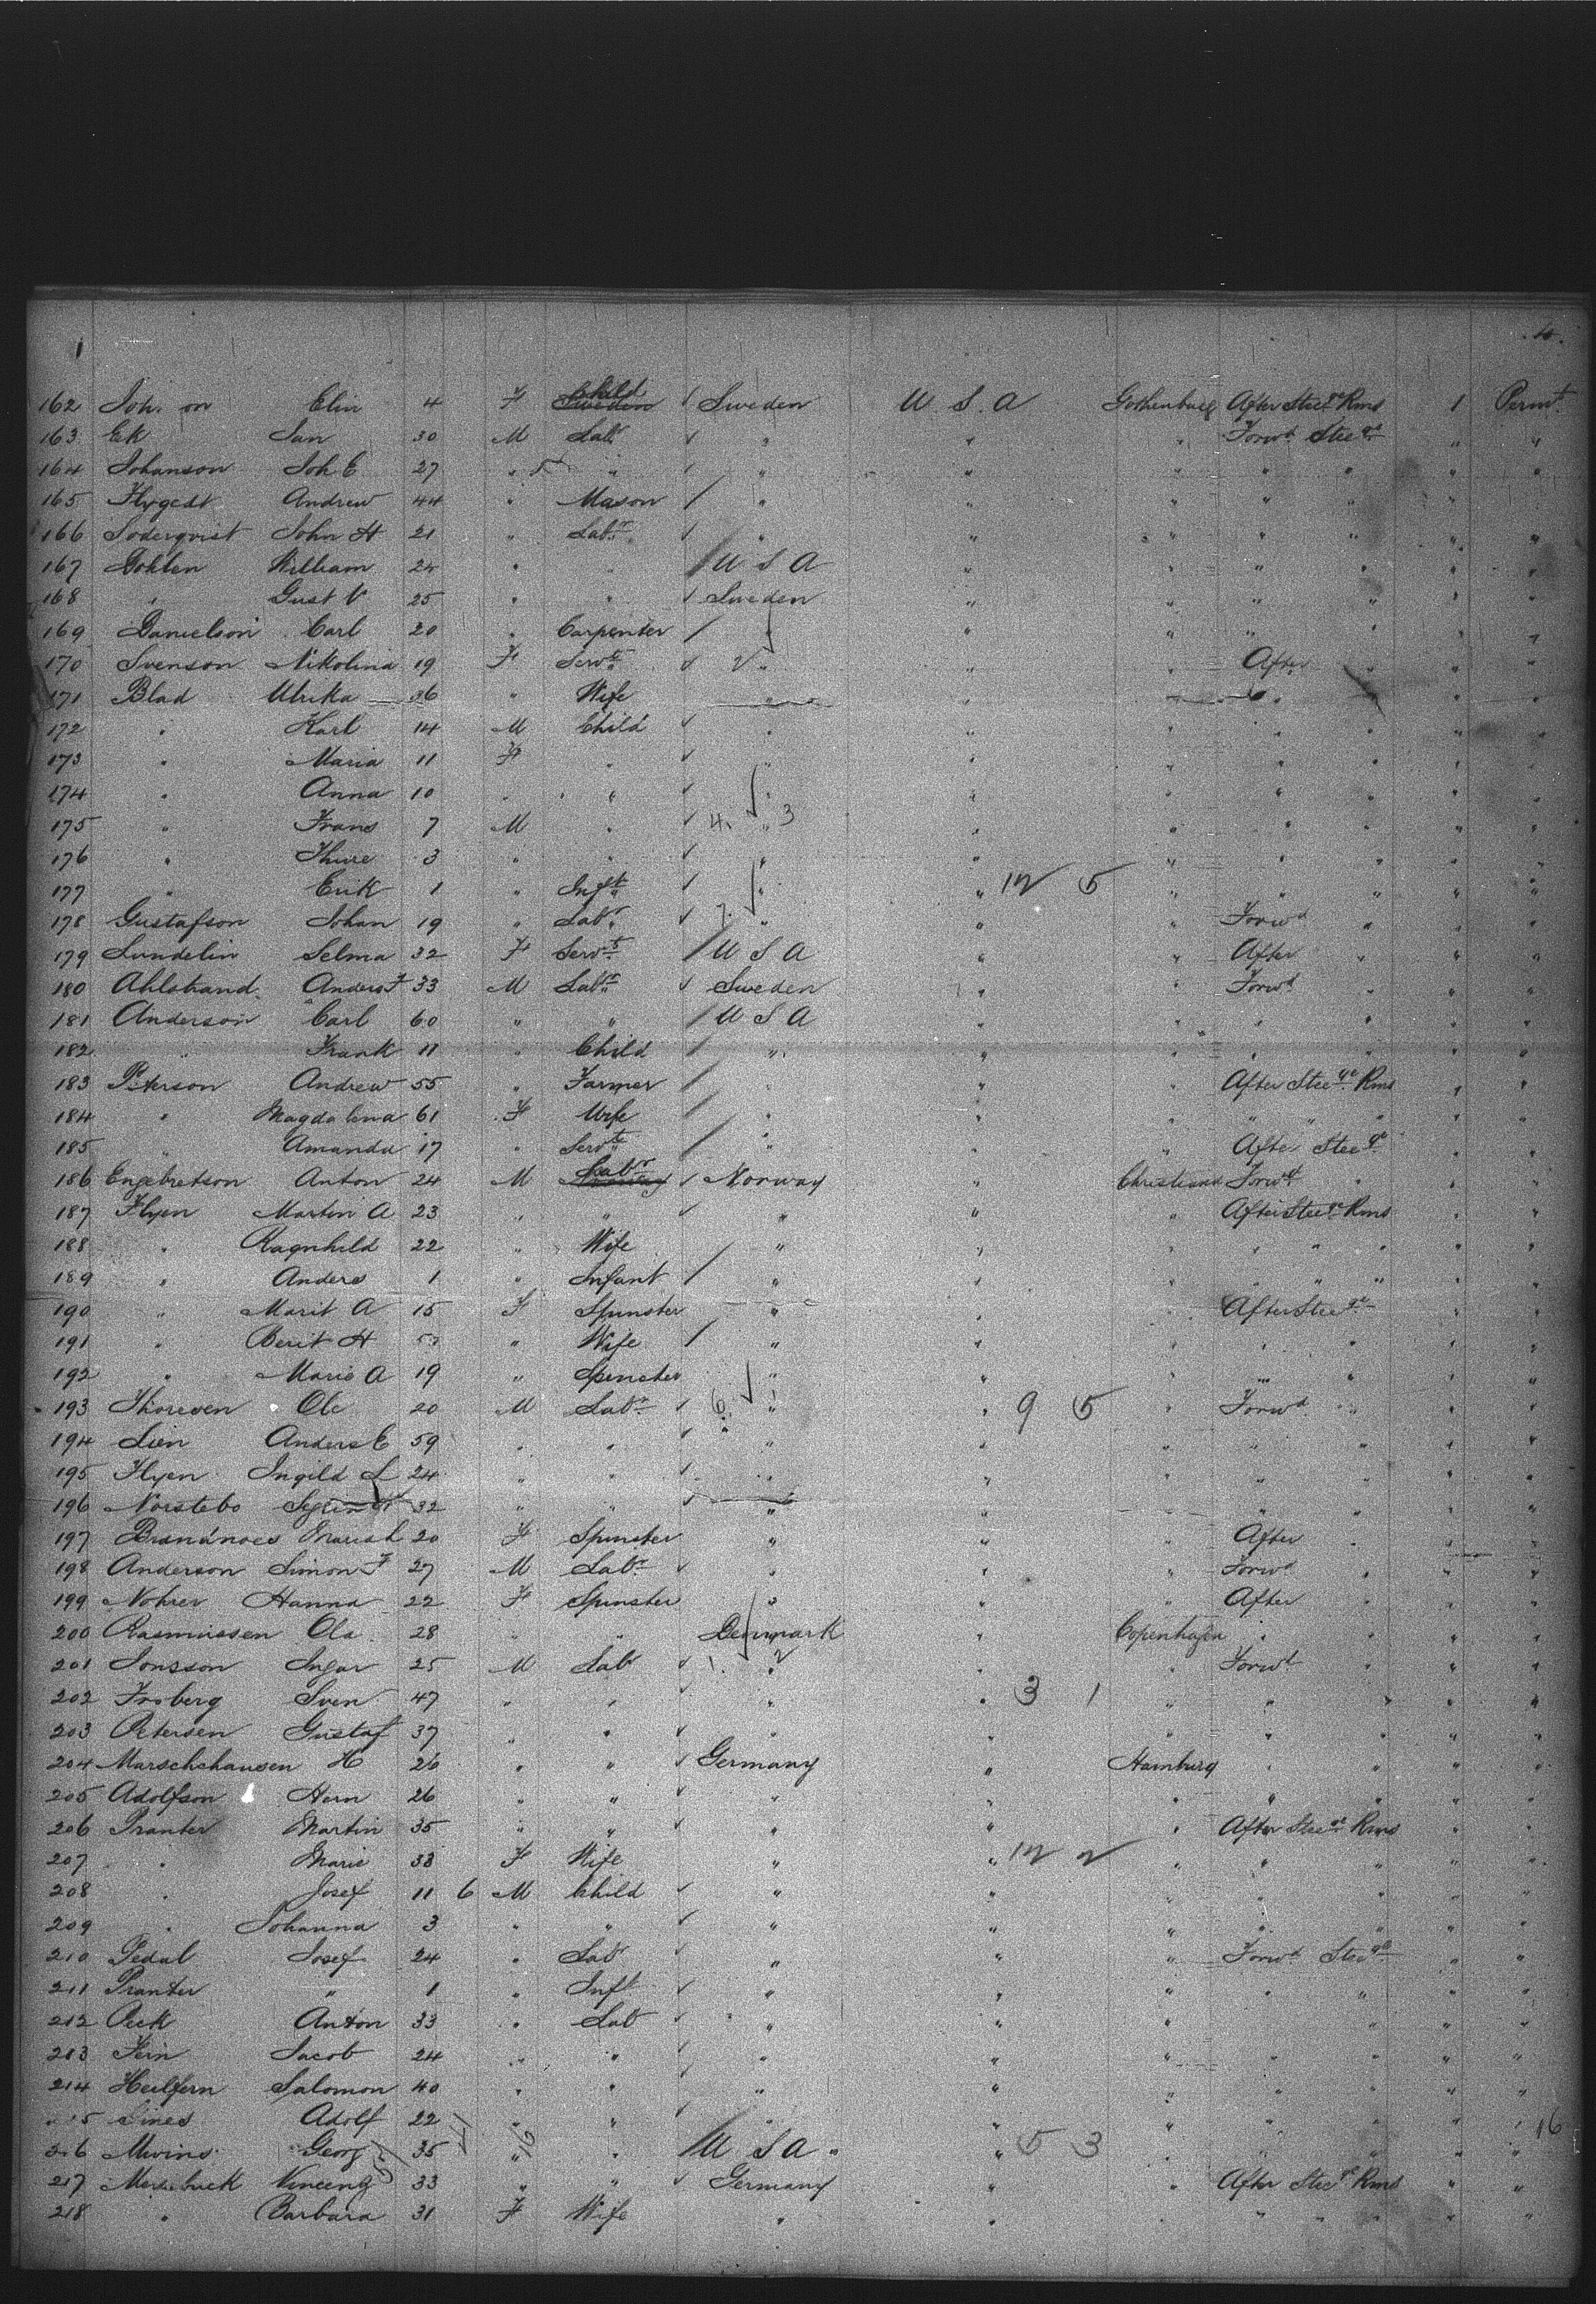 4.
162 Elin 4 F Child Sweden U S. A Gothenburg After Stee.ge Rms 1 Permt.
163 Ek Jan 30 M Labr " " " Forwd Steege " "
164 Johanson Joh E 27 " " " " " " " " " "
165 Andrew 44 " Mason " " " " " " " "
166 Soderqvist John H 21 " Labr " " " " " " " "
167 William 24 " " U S A " " " " " " "
168 " Gust V 25 " " Sweden " " " " " " "
169 Danielson Carl 20 " Carpenter " " " " " "
170 Svenson Nikolina 19 F Servt " " " After " " "
171 Blad Ulrika 36 " Wife " " " " " "
172 " Karl 14 M Child " " " " " " " "
173 " Maria 11 F " " " " " " " " "
174 " Anna 10 " " " " " " " " "
175 " Frans 7 M " 4. " 3 " " " " " "
176 " Thure 3 " " " " " " " " "
177 " Erik 1 " Inft " " 12 5 " " " " " "
178 Gustafson Johan 19 " Labr 7. " " " Forwd " " "
179 Lundelin Selma 32 F Servt U S A " " After " " "
180 Ahlstrand Anders F 33 M Labr Sweden " " Forwd " " "
181 Anderson Carl 60 " " U S A " " " " " "
182 " Frank 11 " Child " " " " " " "
183 Peterson Andrew 55 " Farmer " " " After Steege Rms " "
184 " Magdalena 61 F Wife " " " " " " "
185 " Amanda 17 " Servt " " " After Steege " "
186 Engebretson Anton 24 M Labr Norway " Christiania Forwd " " "
187 Flyen Martin A 23 " " " " " After Steege Rms " "
188 " Ragnhild 22 " Wife " " " " " " "
189 " Anders 1 " Infant " " " " " " "
190 " Marit A 15 F Spinster " " " After Steege " "
191 " Berit H " Wife " " " " " " "
192 " Marie A 19 " Spinster " " " " " " "
193 Thoresen Ole 20 M Labr 6. " " 9 5 " Forwd " " "
194 Lien Anders E 59 " " " " " " " " "
195 Flyen Ingild L 24 " " " " " " " " "
196 Norstebo 32 " " " " " " " " "
197 20 F Spinster " " " After " " "
198 Anderson Simon F 27 M Labr " " " Forwd " " "
199 Hanna 22 F Spinster " " " After " " "
200 Rasmussen Ola 28 " " Denmark " Copenhagen " " " "
201 Jonsson Ingar 25 M Labr 1. " 2 " " Forwd " " "
202 Froberg Sven 47 " " " " 3 1 " " " " "
203 Petersen Gustaf 37 " " " " " " " " "
204 Marschhausen H 26 " " Germany " Hamburg " " " "
205 Adolfson Hern 26 " " " " " " " " "
206 Pranter Martin 35 " " " " " After Steege Rms " "
207 " Marie 33 F Wife " " 12 2 " " " " "
208 " Josef 11 6 M Child " " " " " " "
209 " Johanna 3 " " " " " " " " "
210 Pedal Josef 24 " Labr " " " Forwd Steege " "
211 Pranter " 1 " Inft " " " " " " "
212 Anton 33 " Lab " " " " " "
213 Fein Jacob 24 " " " " " " " " "
214 Heilfern Salomon 40 " " " " " " " " "
Adolf 22 " " " " " " " " " 16
Georg 35 " " U S A " " 5 3 " " " " "
217 Vinceng 33 " " Germany " " After Steege Rms " "
218 " Barbara 31 F Wife " " " " " " "